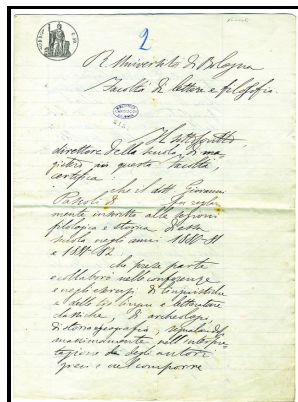 2
R. Università di Bologna
Facoltà di lettere e filosofia.
Il sottoscritto,
direttore della Scuola di ma-
gistero in questa Facoltà,
certifica
che il dott. Giovanni
Pascoli fu regolar-
mente inscritto alle sezioni
filologica e storica d'essa
scuola negli anni 1880-81
e 1881-82.
che prese parte
e collaborò nelle conferenze
e negli esercizi di linguistica
e delle lingue e letterature
classiche, di archeologia,
di storia e geografia, segnalandosi
massimamente nell'interpre-
tazione degli autori
greci e nel comporre